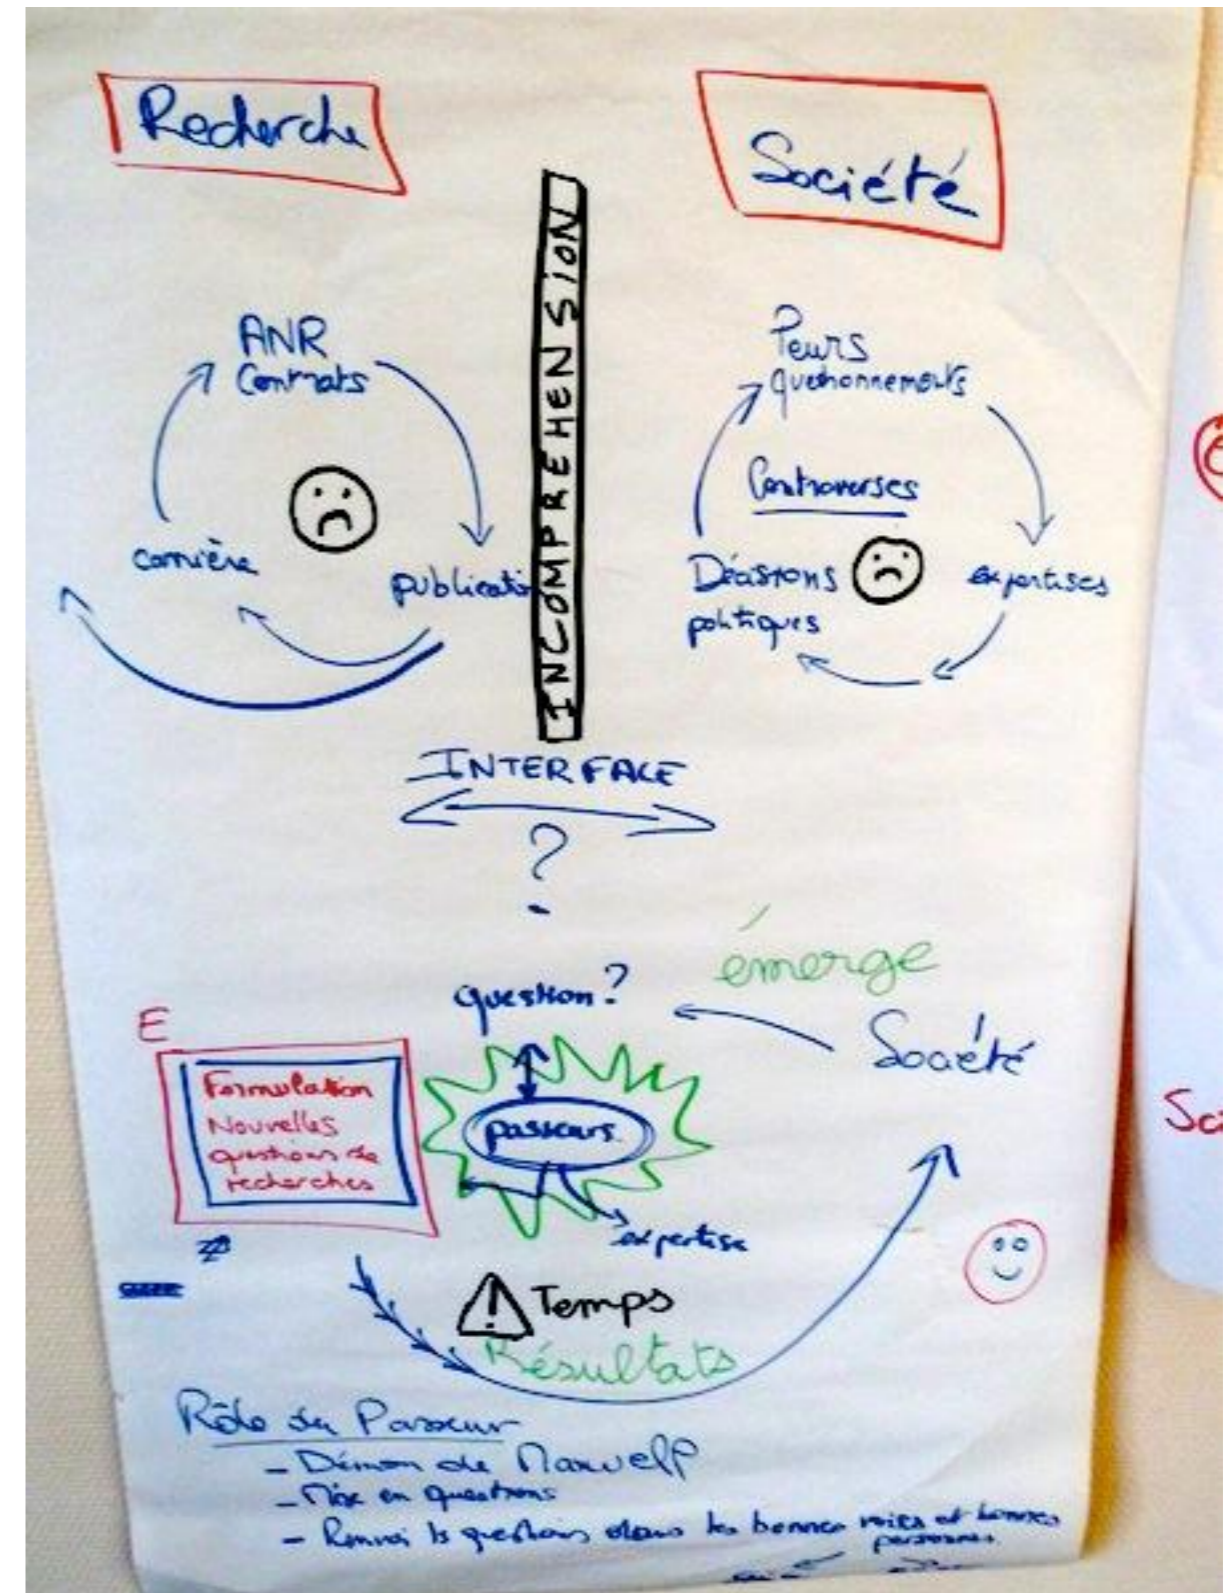 Recherche
Société
INCOMPREHENSION
ANR
Contrats
publication
carrière
Peurs
questionnements
Controverses
expertises
Décisions
politiques
INTERFACE
?
émerge
question?
Société
E
Formulation
Nouvelles
questions de
recherches
passeurs
expertise
! Temps
Résultats
Rôle du Passeur
- Démon de Maxwell
- Mise en questions
- Renvoi ls questions dans les bonnes voies et bonnes
personnes
Sci